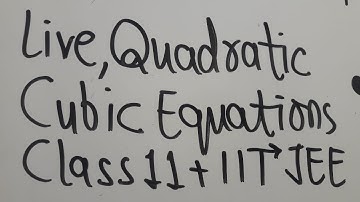 Live, Quadratic
Cubic Equations
Class 11 + IIT JEE